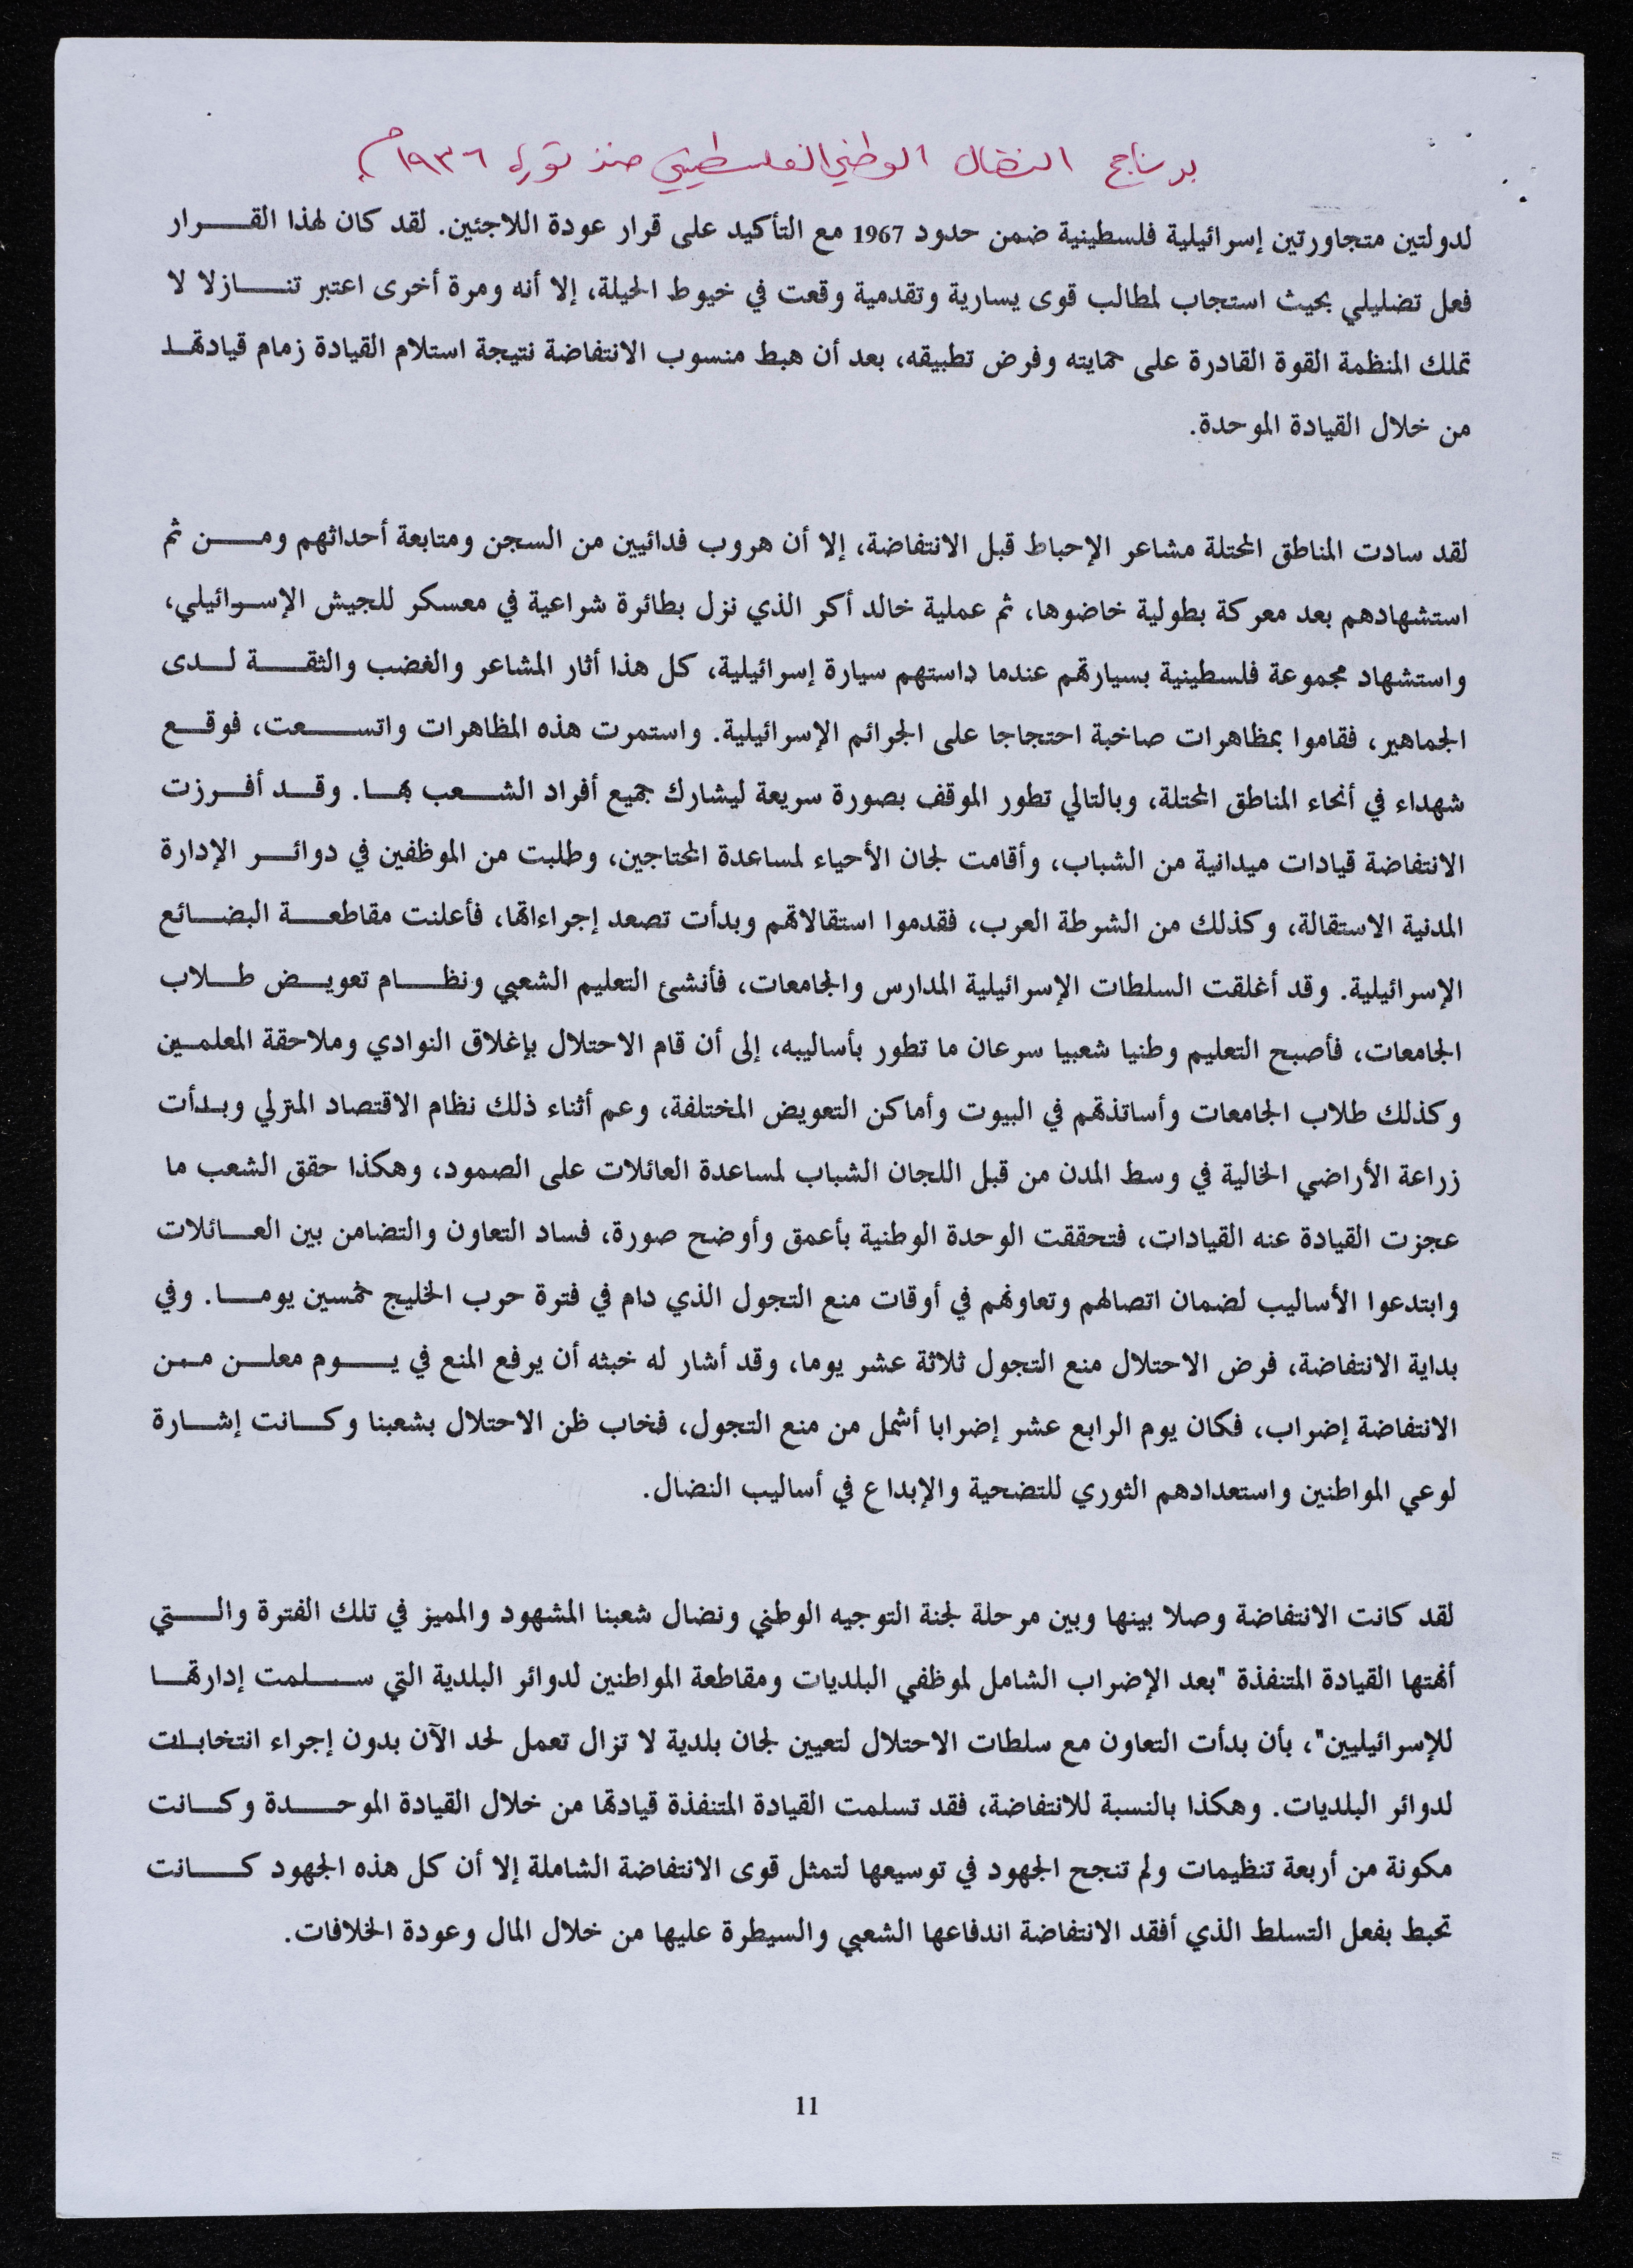 برنامج النضال الوطني الفلسطيني منذ ثورة ١٩٣٦م
لدولتين متجاورتين إسرائيلية فلسطينية ضمن حدود 1967 مع التأكيد على قرار عودة اللاجئين. لقد كان لهذا القرار
فعل تضليلي بحيث استجاب لمطالب قوى يسارية وتقدمية وقعت في خيوط الحيلة، إلا أنه ومرة أخرى اعتبر تنازلا لا
تملك المنظمة القوة القادرة على حمايته وفرض تطبيقه، بعد أن هبط منسوب الانتفاضة نتيجة استلام القيادة زمام قيادتها
من خلال القيادة الموحدة.
لقد سادت المناطق المحتلة مشاعر الإحباط قبل الانتفاضة، إلا أن هروب فدائيين من السجن ومتابعة أحداثهم ومن ثم
استشهادهم بعد معركة بطولية خاضوها، ثم عملية خالد أكر الذي نزل بطائرة شراعية في معسكر للجيش الإسرائيلي،
واستشهاد مجموعة فلسطينية بسيارتهم عندما داستهم سيارة إسرائيلية، كل هذا أثار المشاعر والغضب والثقة لدى
الجماهير، فقاموا بمظاهرات صاخبة احتجاجا على الجرائم الإسرائيلية. واستمرت هذه المظاهرات واتسعت، فوقع
شهداء في أنحاء المناطق المحتلة، وبالتالي تطور الموقف بصورة سريعة ليشارك جميع أفراد الشعب بها. وقد أفرزت
الانتفاضة قيادات ميدانية من الشباب، وأقامت لجان الأحياء لمساعدة المحتاجين، وطلبت من الموظفين في دوائر الإدارة
المدنية الاستقالة، وكذلك من الشرطة العرب، فقدموا استقالاتهم وبدأت تصعد إجراءاتها، فأعلنت مقاطعة البضائع
الإسرائيلية. وقد أغلقت السلطات الإسرائيلية المدارس والجامعات، فأنشئ التعليم الشعبي ونظام تعويض طلاب
الجامعات، فأصبح التعليم وطنيا شعبيا سرعان ما تطور بأساليبه، إلى أن قام الاحتلال بإغلاق النوادي وملاحقة المعلمين
وكذلك طلاب الجامعات وأساتذتهم في البيوت وأماكن التعويض المختلفة، وعم أثناء ذلك نظام الاقتصاد المنزلي وبدأت
زراعة الأراضي الخالية في وسط المدن من قبل اللجان الشباب لمساعدة العائلات على الصمود، وهكذا حقق الشعب ما
عجزت القيادة عنه القيادات، فتحققت الوحدة الوطنية بأعمق وأوضح صورة، فساد التعاون والتضامن بين العائلات
وابتدعوا الأساليب لضمان اتصالهم وتعاونهم في أوقات منع التجول الذي دام في فترة حرب الخليج خمسين يوما. وفي
بداية الانتفاضة، فرض الاحتلال منع التجول ثلاثة عشر يوما، وقد أشار له خبثه أن يرفع المنع في يوم معلن من
الانتفاضة إضراب، فكان يوم الرابع عشر إضرابا أشمل من منع التجول، فخاب ظن الاحتلال بشعبنا وكانت إشارة
لوعي المواطنين واستعدادهم الثوري للتضحية والإبداع في أساليب النضال.
لقد كانت الانتفاضة وصلا بينها وبين مرحلة لجنة التوجيه الوطني ونضال شعبنا المشهود والمميز في تلك الفترة والتي
أنهتها القيادة المتنفذة "بعد الإضراب الشامل لموظفي البلديات ومقاطعة المواطنين لدوائر البلدية التي سلمت إدارتها
للإسرائيليين"، بأن بدأت التعاون مع سلطات الاحتلال لتعيين لجان بلدية لا تزال تعمل لحد الآن بدون إجراء انتخابات
لدوائر البلديات. وهكذا بالنسبة للانتفاضة، فقد تسلمت القيادة المتنفذة قيادتها من خلال القيادة الموحدة وكانت
مكونة من أربعة تنظيمات ولم تنجح الجهود في توسيعها لتمثل قوى الانتفاضة الشاملة إلا أن كل هذه الجهود كانت
تحبط بفعل التسلط الذي أفقد الانتفاضة اندفاعها الشعبي والسيطرة عليها من خلال المال وعودة الخلافات.
11